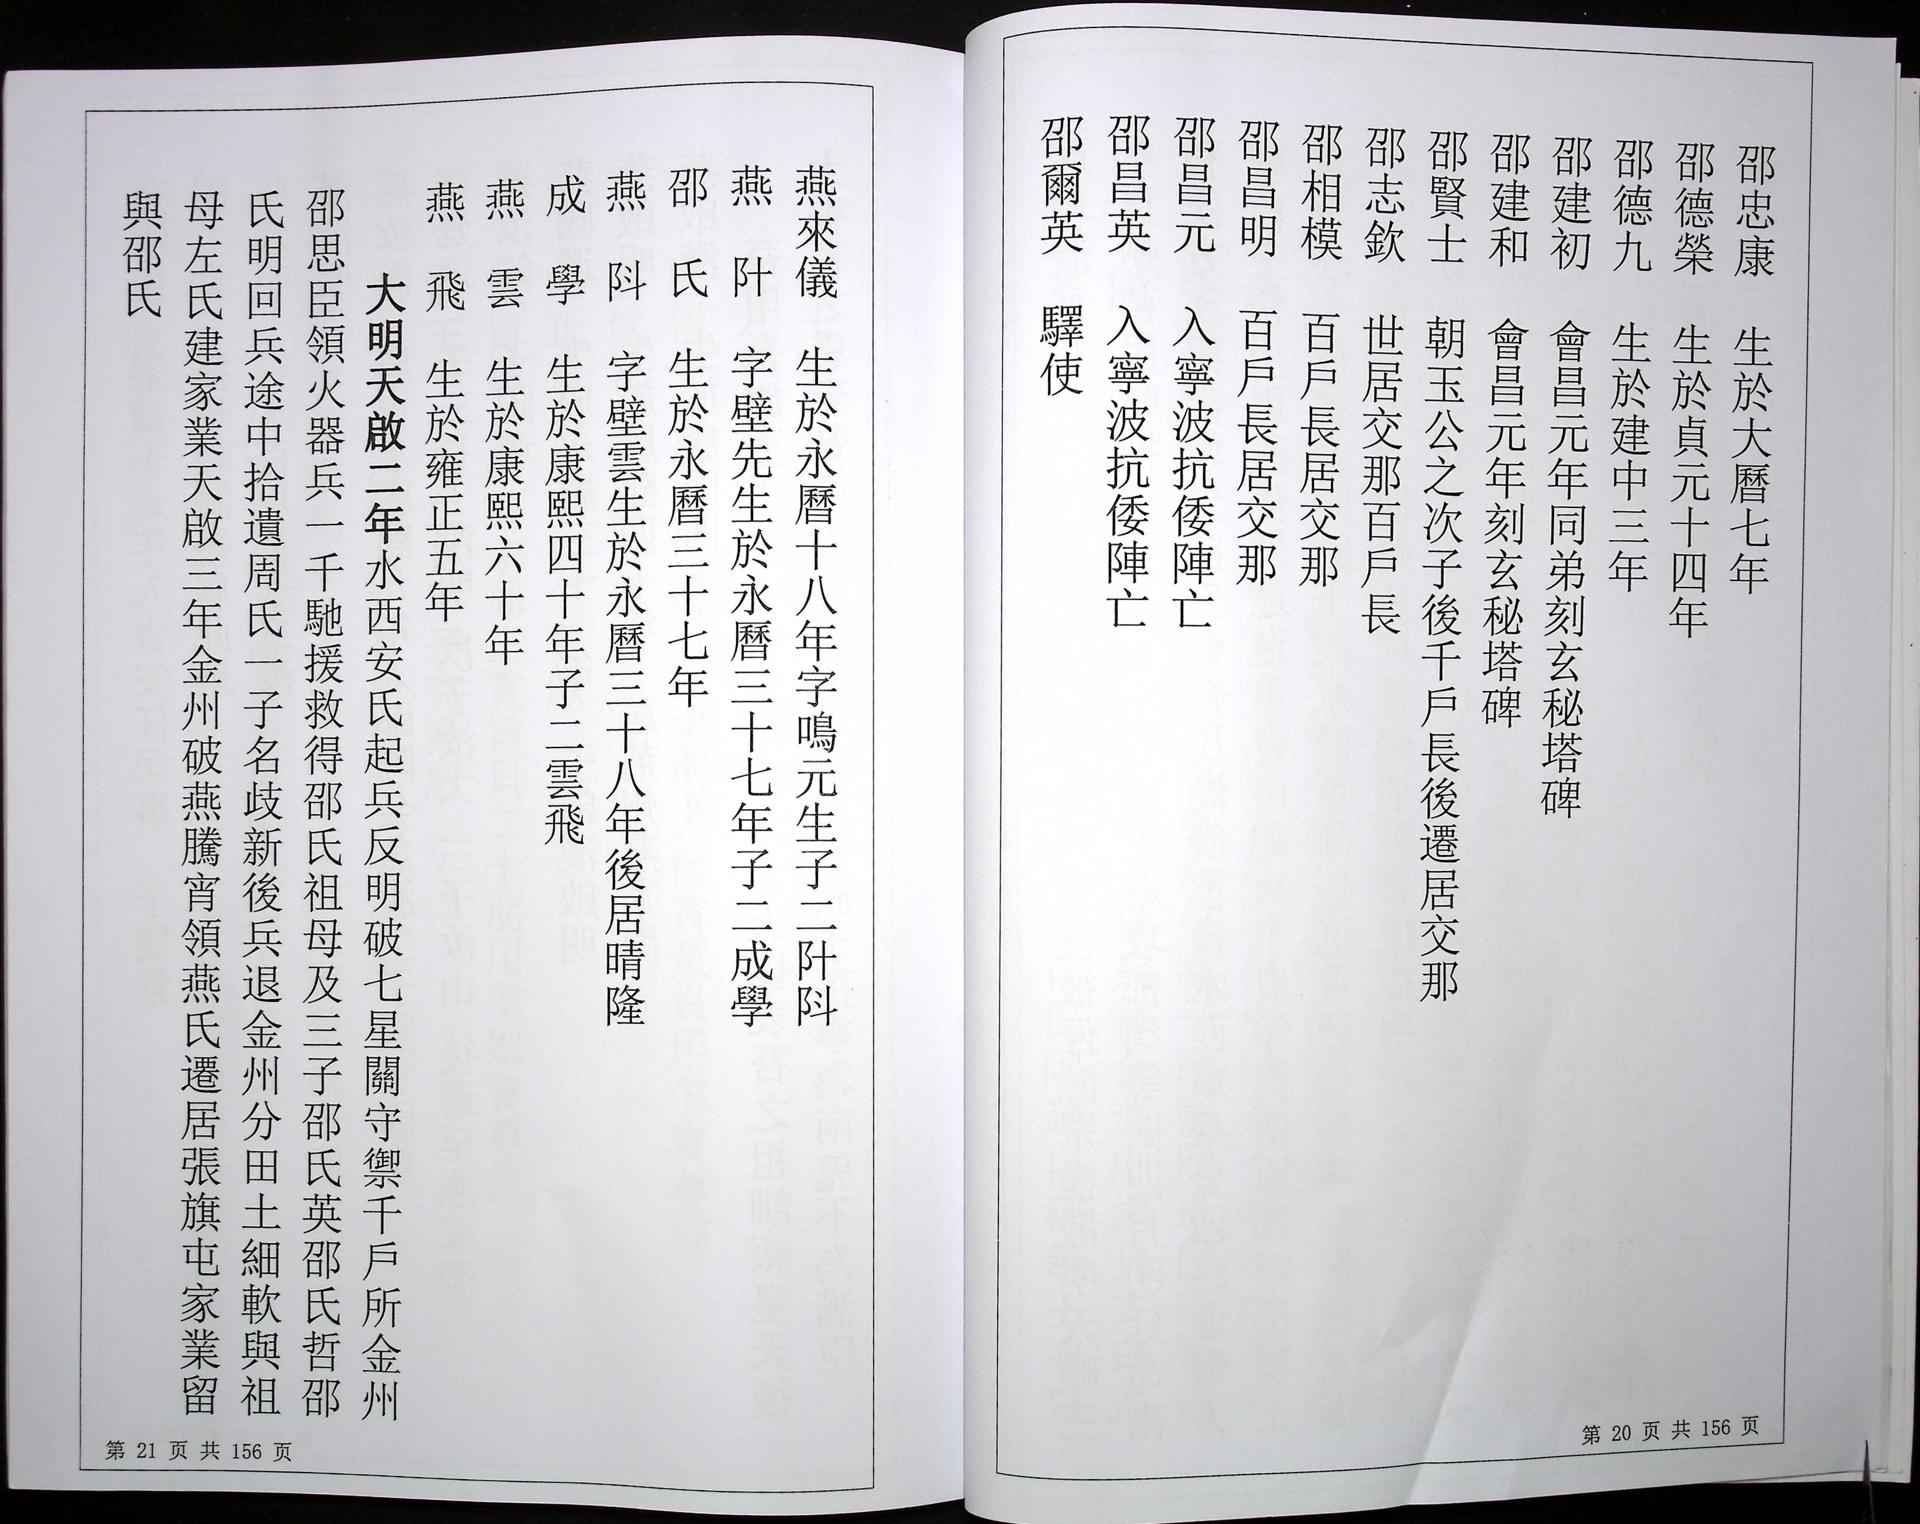 邵忠康　生於大曆七年
邵德榮　生於貞元十四年
邵德九　生於建中三年
邵建初　會昌元年同弟刻玄秘塔碑
邵建和　會昌元年刻玄秘塔碑
邵賢士　朝玉公之次子後千戶長後遷居交那
邵志欽　世居交那百戶長
邵相模　百戶長居交那
邵昌明　百戶長居交那
邵昌元　入寧波抗倭陣亡
邵昌英　入寧波抗倭陣亡
邵爾英　驛使
第 20 页 共 156 页
燕來儀　生於永曆十八年字鳴元生子二阩阧
燕　阩　字壁先生於永曆三十七年子二成學
邵　氏　生於永曆三十七年
燕　阧　字壁雲生於永曆三十八年後居晴隆
成　學　生於康熙四十年子二雲飛
燕　雲　生於康熙六十年
燕　飛　生於雍正五年
大明天啟二年水西安氏起兵反明破七星關守禦千戶所金州
邵思臣領火器兵一千馳援救得邵氏祖母及三子邵氏英邵氏哲邵
氏明回兵途中拾遺周氏一子名歧新後兵退金州分田土細軟與祖
母左氏建家業天啟三年金州破燕騰宵領燕氏遷居張旗屯家業留
與邵氏
第 21 页 共 156 页